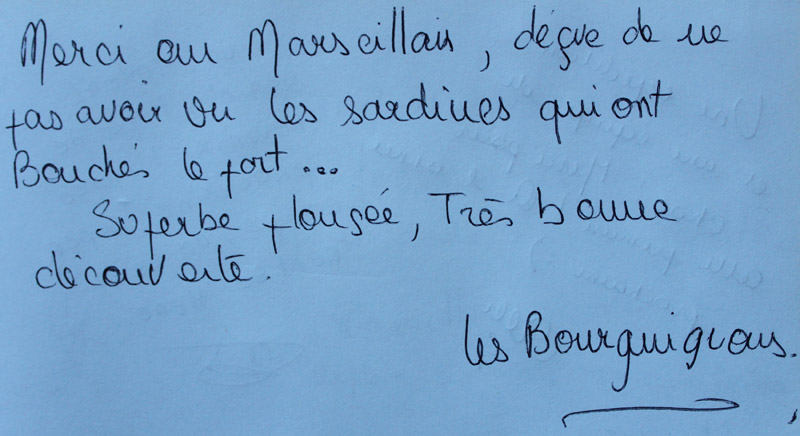 Merci au Marseillais, déçue de ne
pas avoir vu les sardines qui ont
Bouchés le port...
Superbe plongée, Très bonne
découverte.
les Bourguignons.